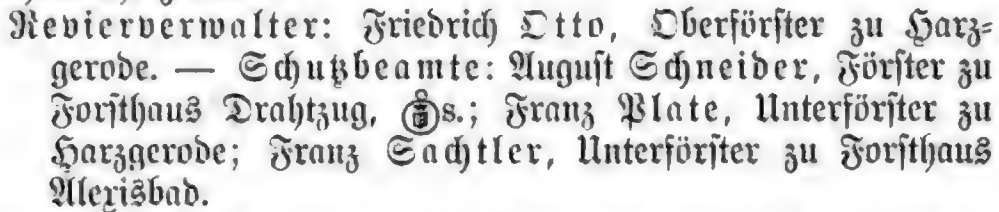 Revierverwalter: Friedrich Otto, Oberförster zu Harz-
gerode. — Schutzbeamte: August Schneider, Förster zu
Forsthaus Drahtzug, s.; Franz Plate, Unterförster zu
Harzgerode; Franz Sachtler, Unterförster zu Forsthaus
Alexisbad.